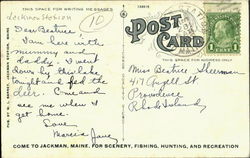 Jackman Station
THIS SPACE FOR WRITING MESSAGES
10
POST CARD
Dear Beatrice!
I am here with
mummy and
daddy. I went
down by the lake
tonight and fed the
deer. Come and
see me when I
get home.
Love
Marcia Jane
Miss Beatrice Sherman
417 Angell St
Providence
Rhode Island
COME TO JACKMAN, MAINE, FOR SCENERY, FISHING, HUNTING, AND RECREATION